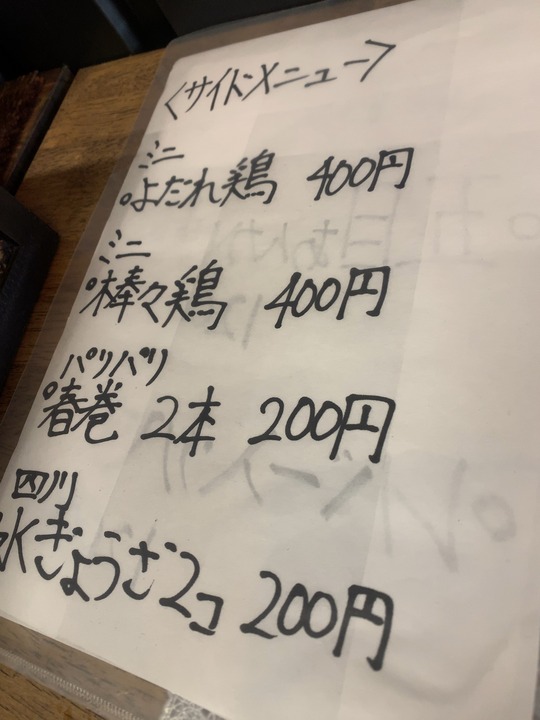 <サイドメニュー>
ミニ
・よだれ鶏 400円
ミニ
・棒々鶏 400円
パリパリ
・春巻 2本 200円
四川
水ぎょうざ2コ 200円